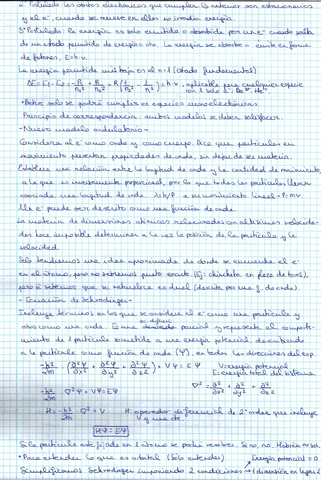 2º Postulado: los orbitos electronicos que cumplen lo anterior son estacionarios
y el e⁻, cuando se mueve en ellos no irradia energía.
3º Postulado: la energía es solo emitida o absorbida por un e⁻ cuando salta
de un estado permitido de energía a otro. La energía se absorbe o emite en forma
de fotones, E=h·ν.
La energía permitida más baja es el n=1 (Estado fundamental)
aplicable para cualquier especie
con 1 solo e⁻:
*Anterior solo se podrá cumplir en especies monoelectrónicas.
Principio de correspondencia: ambos modelos se deben satisfacer.
-Nuevo modelo ondulatorio-
Considera al e⁻ como onda y como cuerpo. Dice que partículas en
movimiento presentan propiedades de onda, sin dejar de ser materia.
Establece una relación entre la longitud de onda y la cantidad de movimiento,
a la que es inversamente proporcional, por lo que todas las partículas llevan
asociada una longitud de onda. λ=h/P a su momento lineal → P=mv
Un e⁻ puede ser descrito como una función de onda.
La materia de dimensiones atómicas relacionadas con altísimas velocida-
des hace imposible determinar a la vez la posición de la partícula y la
velocidad.
Solo tendremos una idea aproximada de donde se encuentra el e⁻
en el átomo, pero no sabremos punto exacto (Ej: chincheta en pieza de bois),
pero sí sabemos que su naturaleza es dual (descrita por una f. de onda).
-Ecuación de Schrodinger-
Incluye términos en los que se considera al e⁻ como una partícula y
otros como una onda. Es una parcial y representa el comporta-
miento de 1 partícula sometida a una energía potencial, describiendo
a la partícula como función de onda (Ψ), en todas las direcciones del esp.
-h²/2m (∂²Ψ/∂x² + ∂²Ψ/∂y² + ∂²Ψ/∂z²) + VΨ = EΨ V: energía potencial
E: energía total del sistema
-h²/2m ∇²Ψ + VΨ = EΨ ∇² = ∂²/∂x² + ∂²/∂y² + ∂²/∂z²
H = -h²/2m ∇² + V H: operador diferencial de 2º orden que incluye
V y una cte.
HΨ = EΨ
Si la partícula está fijada en 1 átomo se podrá resolver. Si no, no.
*Para entender lo que es orbital (Solo entender) Energía potencial = 0
Simplificamos Schrodinger imponiendo 2 condiciones → 1 dimensión en lugar de